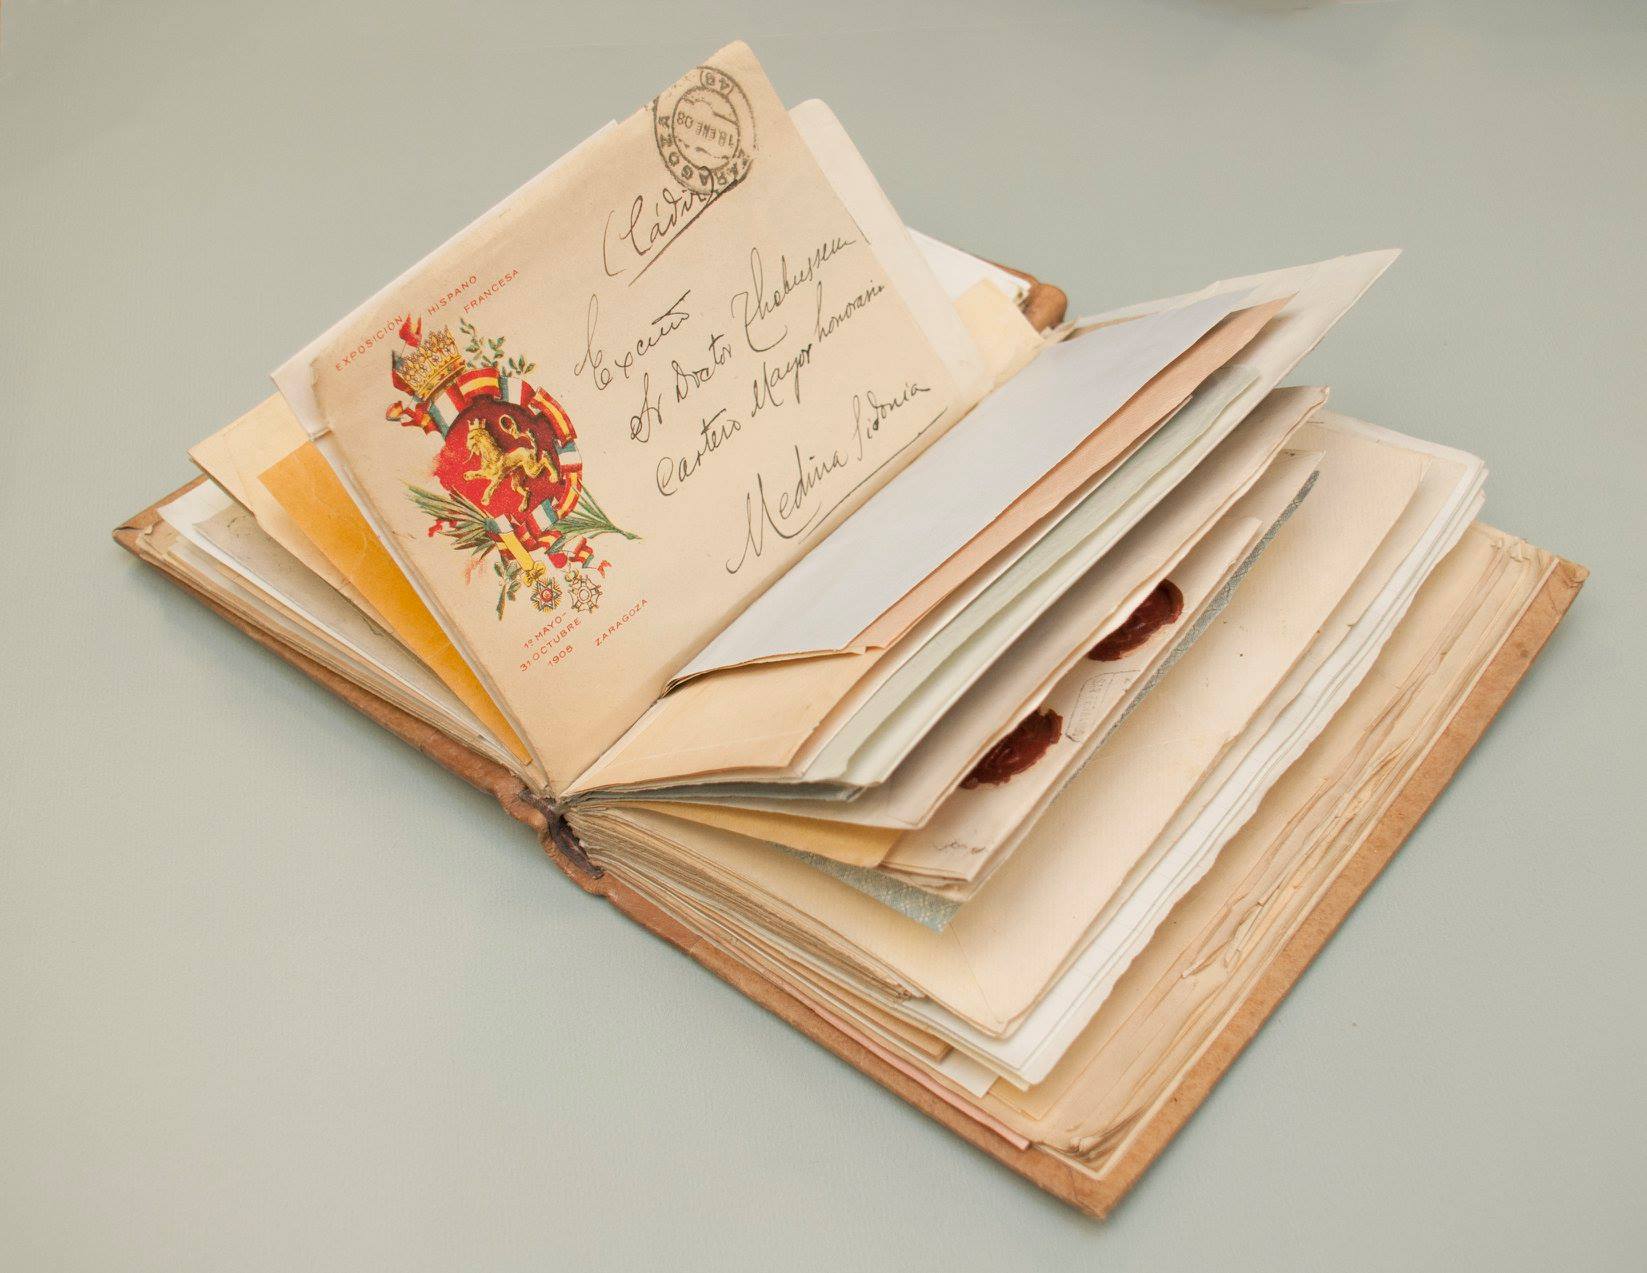 ZARAGOZA
18 ENE 08
(Cádiz)
EXPOSICIÓN HISPANO FRANCESA
Excmo
Sr Doctor Thebussem
Cartero Mayor honorario
Medina Sidonia
1º MAYO-
31 OCTUBRE
1908 ZARAGOZA